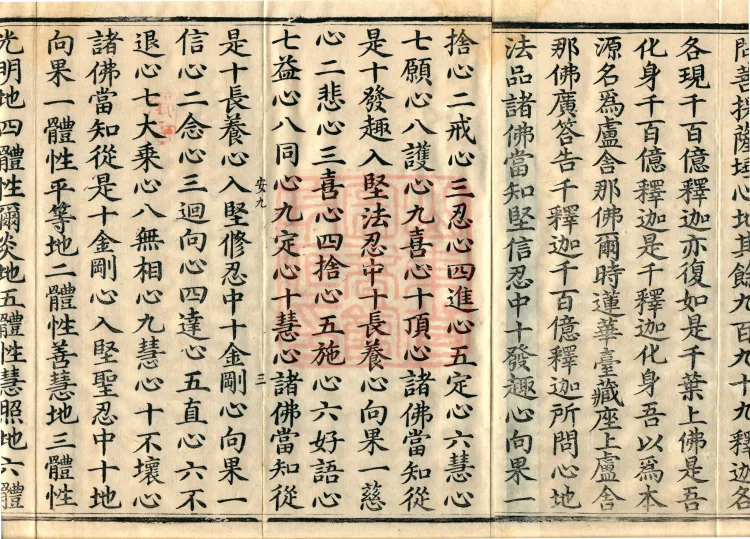 問菩提薩埵心地其餘九百九十九釋迦各
各現千百億釋迦亦復如是千葉上佛是吾
化身千百億釋迦是千釋迦化身吾以爲本
源名爲盧舍那佛爾時蓮華臺藏座上盧舍
那佛廣答告千釋迦千百億釋迦所問心地
法品諸佛當知堅信忍中十發趣心向果一
捨心二戒心三忍心四進心五定心六慧心
七願心八護心九喜心十頂心諸佛當知從
是十發趣入堅法忍中十長養心向果一慈
心二悲心三喜心四捨心五施心六好語心
七益心八同心九定心十慧心諸佛當知從
安九 三
是十長養心入堅修忍中十金剛心向果一
信心二念心三迴向心四達心五直心六不
退心七大乘心八無相心九慧心十不壞心
諸佛當知從是十金剛心入堅聖忍中十地
向果一體性平等地二體性善慧地三體性
光明地四體性爾炎地五體性慧照地六體